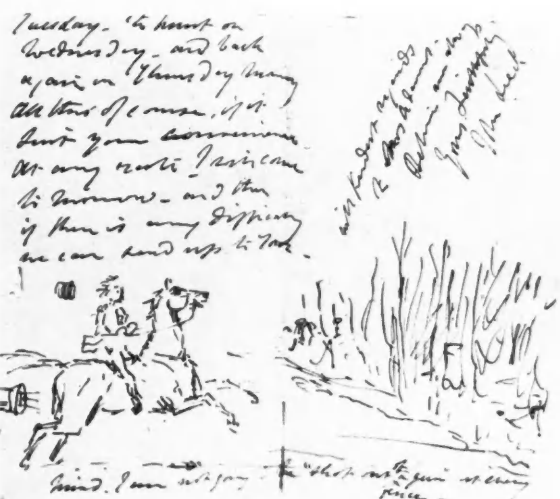 Tuesday - to hunt on
Wednesday - and back
again on Thursday
all this of course, if it
suit your convenience
at any rate I will come
tomorrow - and then
if there is any difficulty
we can send up to
with kindest regards
to Mrs Adams
Believe me always
Yours faithfully
John Leech
mind. I am not going to be "shot out of the gun" at every
fence